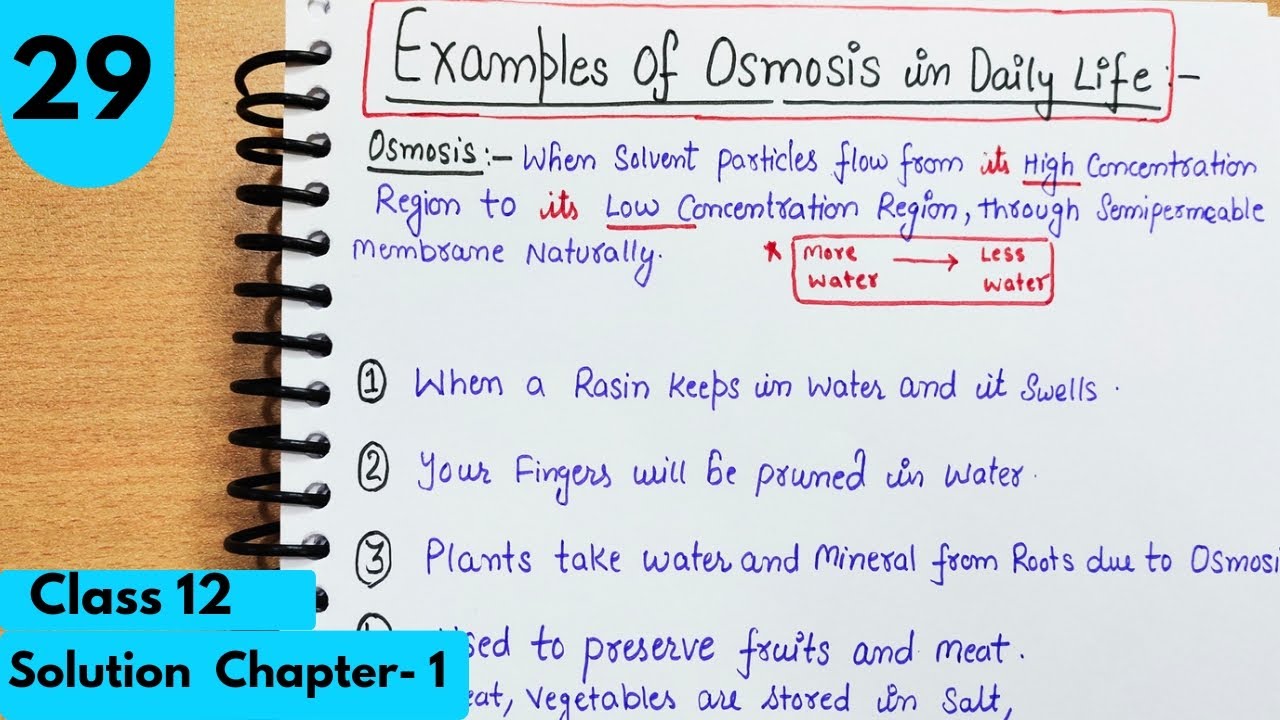 29
Examples Of Osmosis in Daily Life :-
Osmosis :- When Solvent particles flow from its High Concentration
Region to its Low Concentration Region, through Semipermeable
Membrane Naturally.
* More → Less
water water
① When a Rasin keeps in water and it Swells.
② Your Fingers will be pruned in water.
③ Plants take water and Mineral from Roots due to Osmosi
to preserve fruits and meat.
vegetables are stored in Salt,
Class 12
Solution Chapter- 1